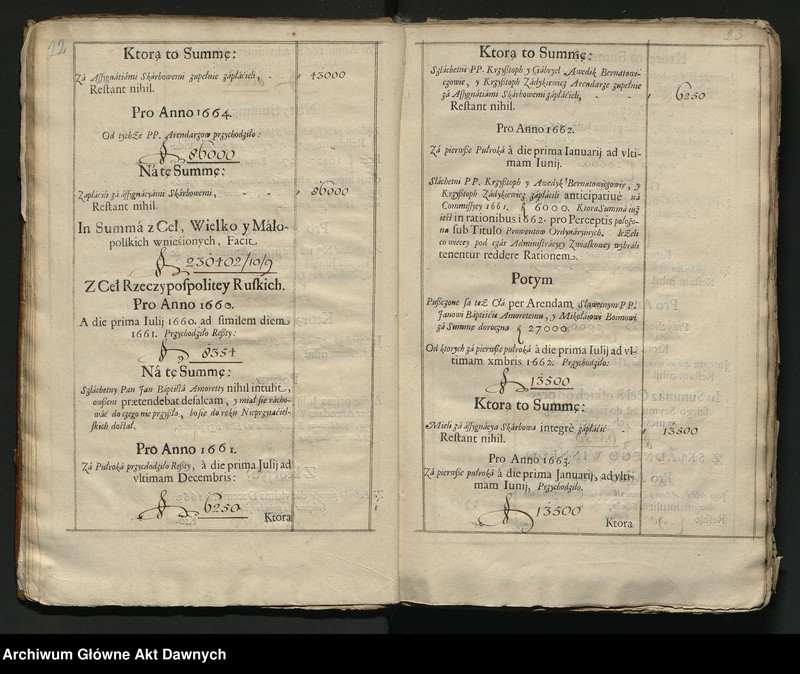 22
Ktorą to Summę:
Zá Assignátiámi Skárbowemi zupełnie zápłáćieli, 43000
Restant nihil.
Pro Anno 1664.
Od tychże PP. Arendárzow przychodźiło:
86000
Ná tę Summę:
Zápłáćili zá ássignácyámi Skárbowemi, 86000
Restant nihil.
In Summá z Ceł, Wielko y Máło-
polskich wniesionych, Facit
230402/10/9
Z Ceł Rzeczypospolitey Ruskich.
Pro Anno 1660.
A die prima Iulij 1660. ad similem diem
1661. Przychodźiło Resty:
8354
Ná tę Summę:
Szláchetny Pan Jan Báptistá Amoretty nihil intulit,
owszem prætendebat defalcam, y miał się rácho-
wáć do czego nie przyszło, bo się do ręku Nieprzyiaćiel-
skich dostał.
Pro Anno 1661.
Zá Pułroká przychodźiło Resty, à die prima Julij ad
vltimam Decembris:
6250
Ktora
23
Ktorą to Summę:
Szláchetni PP. Krzysztoph y Gábryel Awedik Bernatowi-
czowie, y Krzysztoph Zádykiewicz Arendarze zupełnie
zá Assignátiámi Skárbowemi zápłáćieli, 6250
Restant nihil.
Pro Anno 1662.
Zá pierwsze Pułroká à die prima Ianuarij ad vlti-
mam Iunij.
Sláchetni PP. Krzysztoph y Awedyk Bernatowiczowie, y
Krzysztoph Zádykiewicz zápłáćili anticipatiuè ná
Commissyey 1661. 6000. Ktora Summá iuż
iest in rationibus 1662. pro Perceptis położo-
na sub Titulo Prowentow Ordynáryinych. Ieżeli
co wiecey pod czás Administrácyey Zwiaskowey wybráli
tenentur reddere Rationem.
Potym
Pusczone są też Cłá per Arendam Sławetnym PP.
Janowi Báptiśćie Amoretemu, y Mikołáiowi Boimowi
zá Summę doroczną 27000.
Od ktorych zá pierwsze pułroká à die prima Iulij ad vl-
timam xmbris 1662. Przychodźiło:
13500
Ktorą to Summę:
Mieli zá ássignácya Skárbowa integrè zápłáćić 13500
Restant nihil.
Pro Anno 1663.
Zá pierwsze pułroká à die prima Januarij, ad vlti-
mam Iunij, Przychodźiło.
13500
Ktora
Archiwum Główne Akt Dawnych